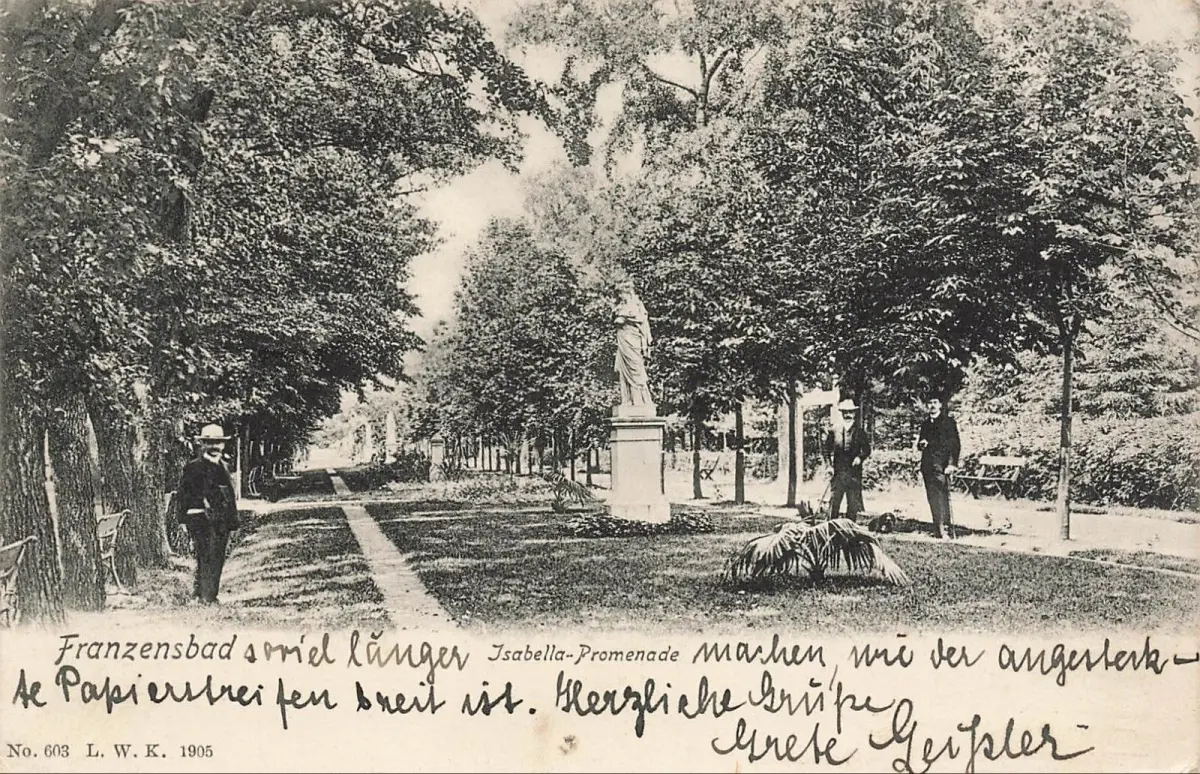 Franzensbad soviel länger Isabella-Promenade machen, wie der angesteck-
te Papierstreifen breit ist. Herzliche Grüße
Grete Geißler
No. 603 L. W. K. 1905